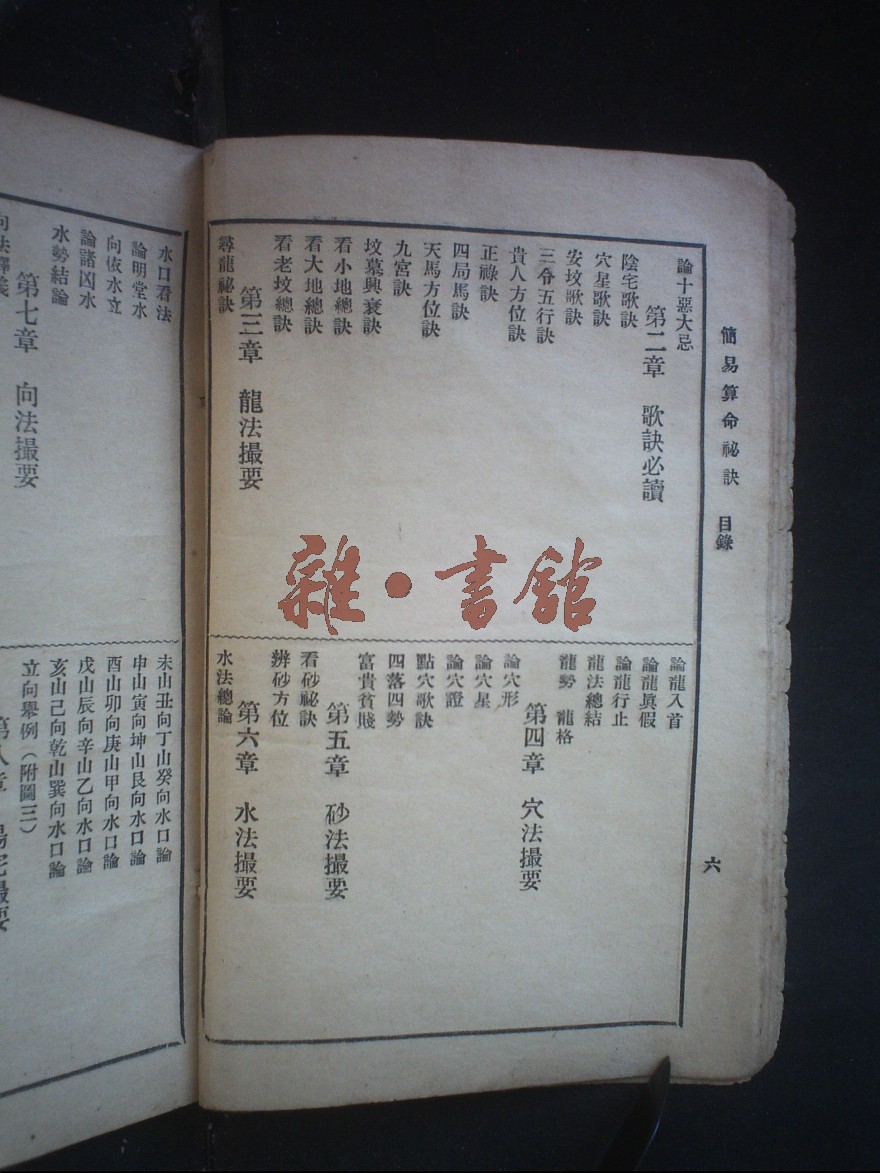 簡易算命祕訣 目錄
六
論十惡大忌
第二章 歌訣必讀
陰宅歌訣
穴星歌訣
安坟歌訣
三合五行訣
貴人方位訣
正祿訣
四局馬訣
天馬方位訣
九宮訣
坟墓興衰訣
看小地總訣
看大地總訣
看老坟總訣
第三章 龍法撮要
尋龍祕訣
論龍入首
論龍眞假
論龍行止
龍法總結
龍勢 龍格
第四章 穴法撮要
論穴形
論穴星
論穴證
點穴歌訣
四落四勢
富貴貧賤
第五章 砂法撮要
看砂祕訣
辨砂方位
第六章 水法撮要
水法總論
雜·書館
水口看法
論明堂水
向依水立
論諸凶水
水勢結論
第七章 向法撮要
向法釋義
未山丑向丁山癸向水口論
申山寅向坤山艮向水口論
酉山卯向庚山甲向水口論
戌山辰向辛山乙向水口論
亥山己向乾山巽向水口論
立向舉例(附圖三)
第八章 陽宅撮要